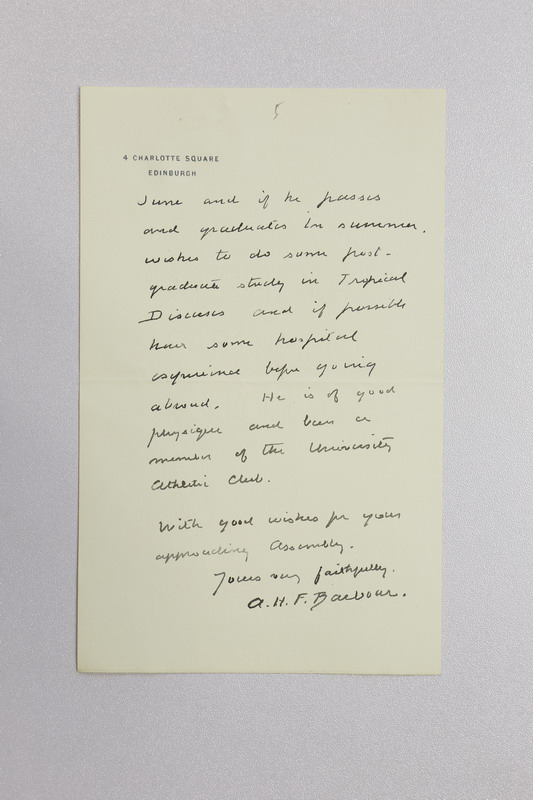 5
4 CHARLOTTE SQUARE
EDINBURGH
June and if he passes
and graduates in summer,
wishes to do some post-
graduate study in Tropical
Diseases and if possible
have some hospital
experience before going
abroad. He is of good
physique and been a
member of the University
Athletic Club.
With good wishes for your
approaching Assembly.
Yours very faithfully.
A. H. F. Barbour.